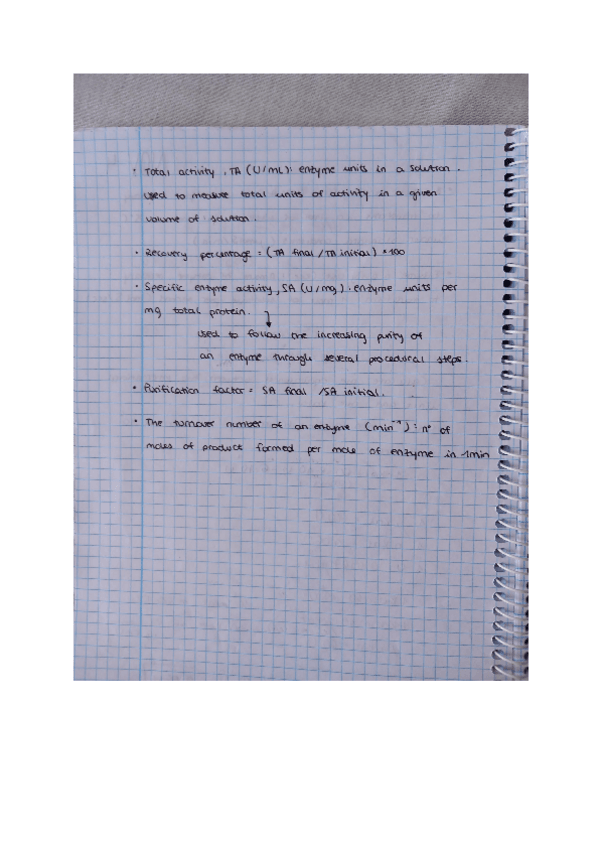 · Total activity, TA (U/mL): enzyme units in a solution.
used to measure total units of activity in a given
volume of solution.
· Recovery percentage = (TA final /TA initial) · 100
· Specific enzyme activity, SA (U/mg): enzyme units per
mg total protein.
used to follow the increasing purity of
an enzyme through several procedural steps.
· Purification factor = SA final /SA initial.
· The turnover number of an enzyme (min⁻¹): nº of
moles of product formed per mole of enzyme in 1min